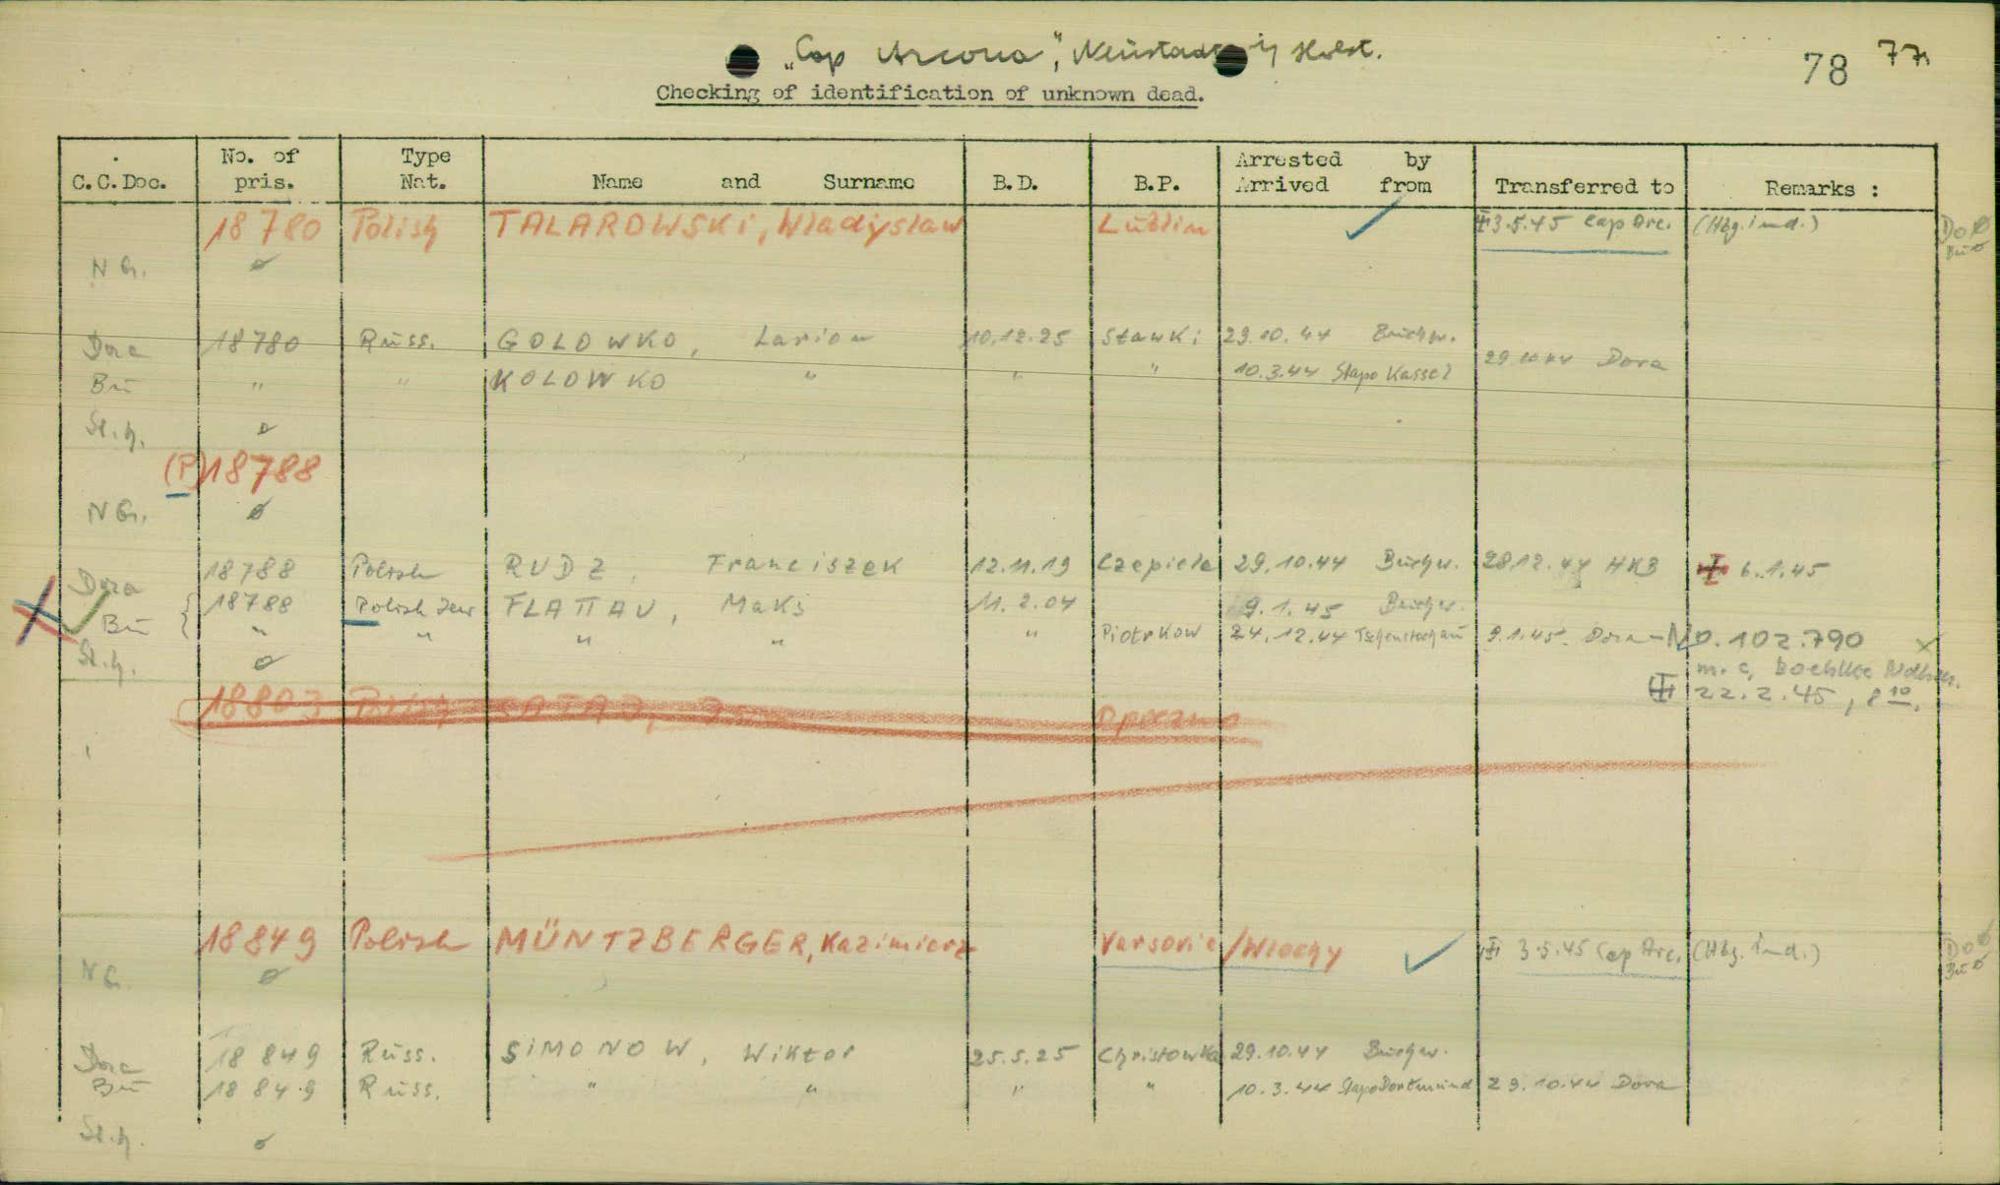 „Cap Arcona“, Neustadt i/ Holst.
78 77
Checking of identification of unknown dead.
C.C.Doc. No. of pris. Type Nat. Name and Surname B.D. B.P. Arrested by Arrived from Transferred to Remarks :
18780 Polish TALAROWSKI, Wladyslaw Lublin ✓ 3.5.45 Cap Arc. (Hbg. ind.) Do ø
Bu ø
N G. ø
Dora 18780 Russ. GOLOWKO, Larion 10.12.25 Stawki 29.10.44 Buchw.
29.10.44 Dora
Bu " " KOLOWKO " " " 10.3.44 Stapo Kassel
St.h. ø
(P) 18788
N G. ø
Dora 18788 Polish RUDZ, Franciszek 12.11.19 Czepiela 29.10.44 Buchw. 28.12.44 HKB 6.1.45
18788 Polish Jew FLATTAU, Maks 11.2.04 9.1.45 Buchw.
Bu " " " " " Piotrkow 24.12.44 Tschenstochau 9.1.45 Dora - No. 102.790 ×
St.h. ø
22.2.45, 8 10.
18803 Polish
18849 Polish MÜNTZBERGER, Kazimierz Varsovie/Wlochy ✓ 3.5.45 Cap Arc. (Hbg. ind.) Do ø
Bu ø
N G. ø
Dora 18849 Russ. SIMONOW, Wiktor 25.5.25 Christowka 29.10.44 Buchw.
Bu 18849 Russ. " " " " 10.3.44 Stapo Dortmund 29.10.44 Dora
St.h. ø